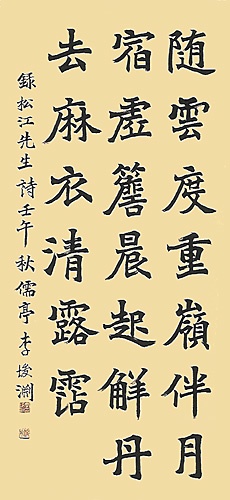 随雲度重嶺伴月
宿虛簷晨起觧丹
去麻衣清露霑
録松江先生詩壬午秋儒亭李埈渊